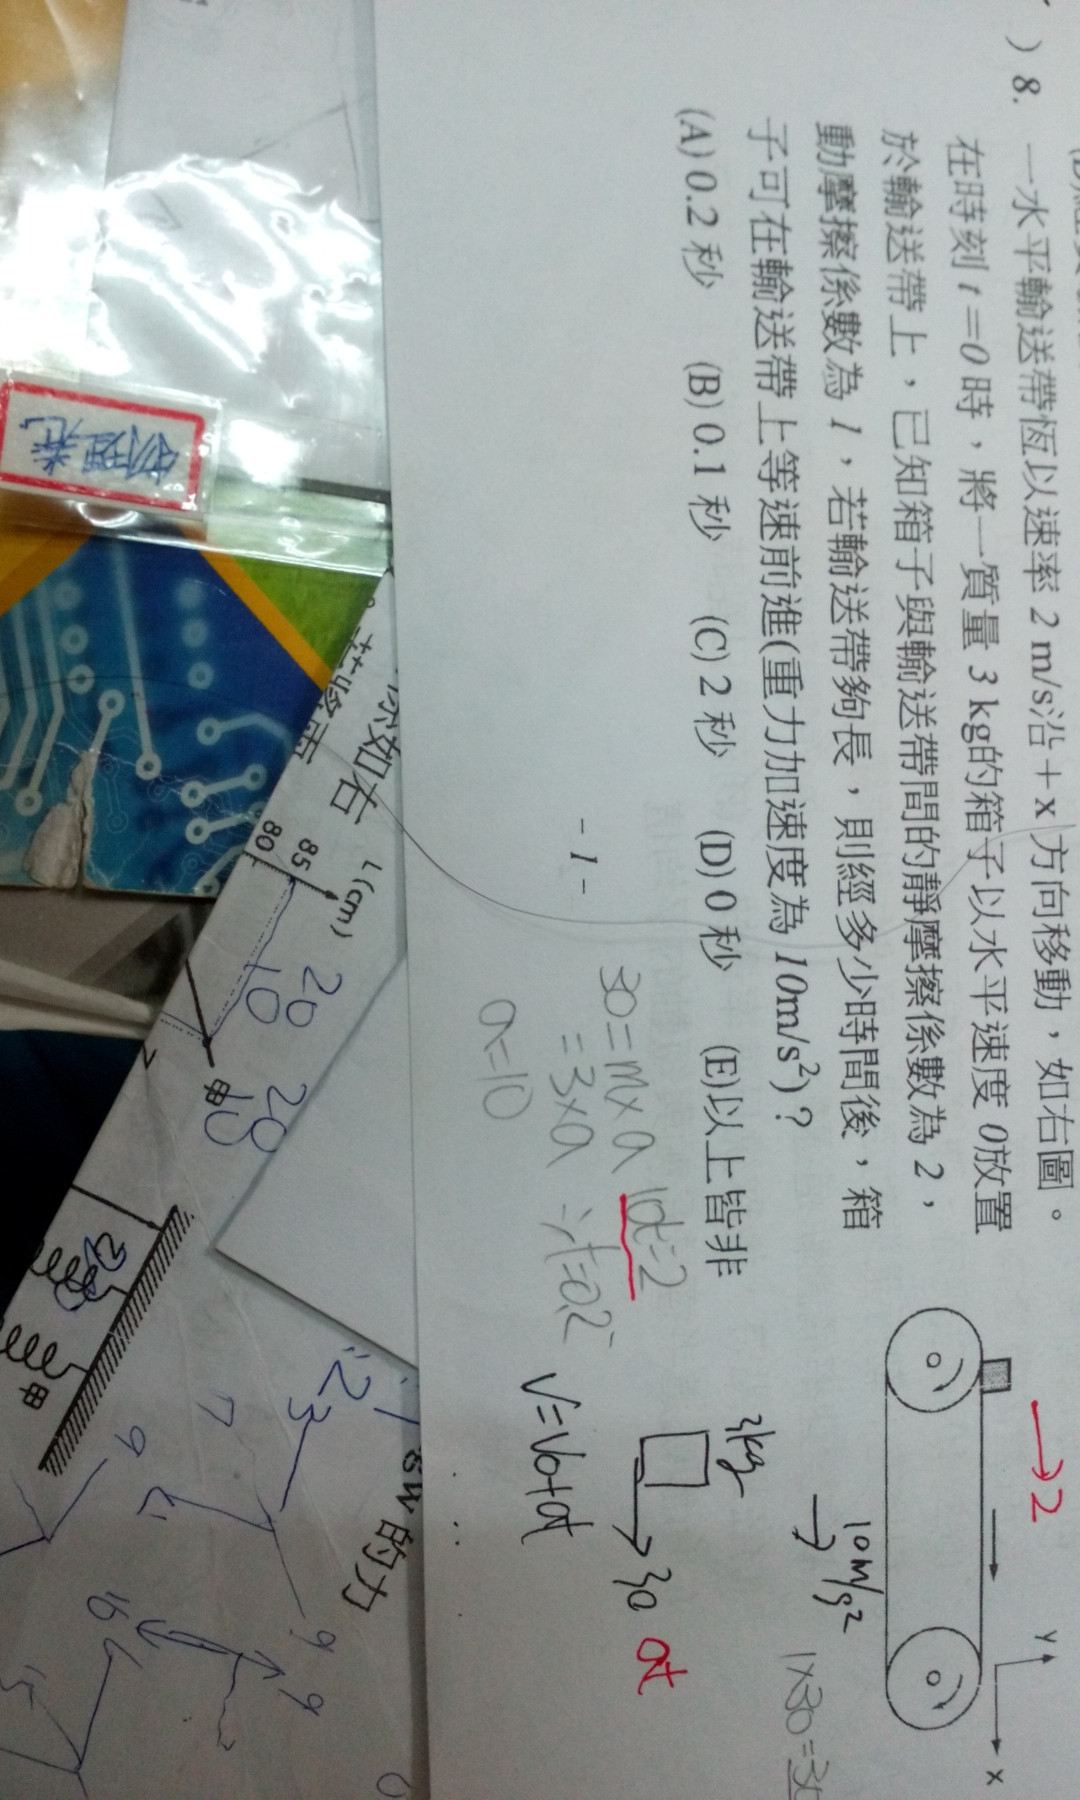 ) 8. 一水平輸送帶恆以速率 2 m/s沿＋x 方向移動，如右圖。
在時刻 t＝0 時，將一質量 3 kg的箱子以水平速度 0放置
於輸送帶上，已知箱子與輸送帶間的靜摩擦係數為 2，
動摩擦係數為 1，若輸送帶夠長，則經多少時間後，箱
子可在輸送帶上等速前進(重力加速度為 10m/s²)？
(A) 0.2 秒 (B) 0.1 秒 (C) 2 秒 (D) 0 秒 (E)以上皆非
- 1 -
→2
Y
X
10m/s²
1×30=30
3kg
3a
at
V=V0+at
30=m×a
=3×a
a=10
10t=2
∴t=0.2
物理卷
如右
L(cm)
85
80
20
10
20
10
甲
甲
的力